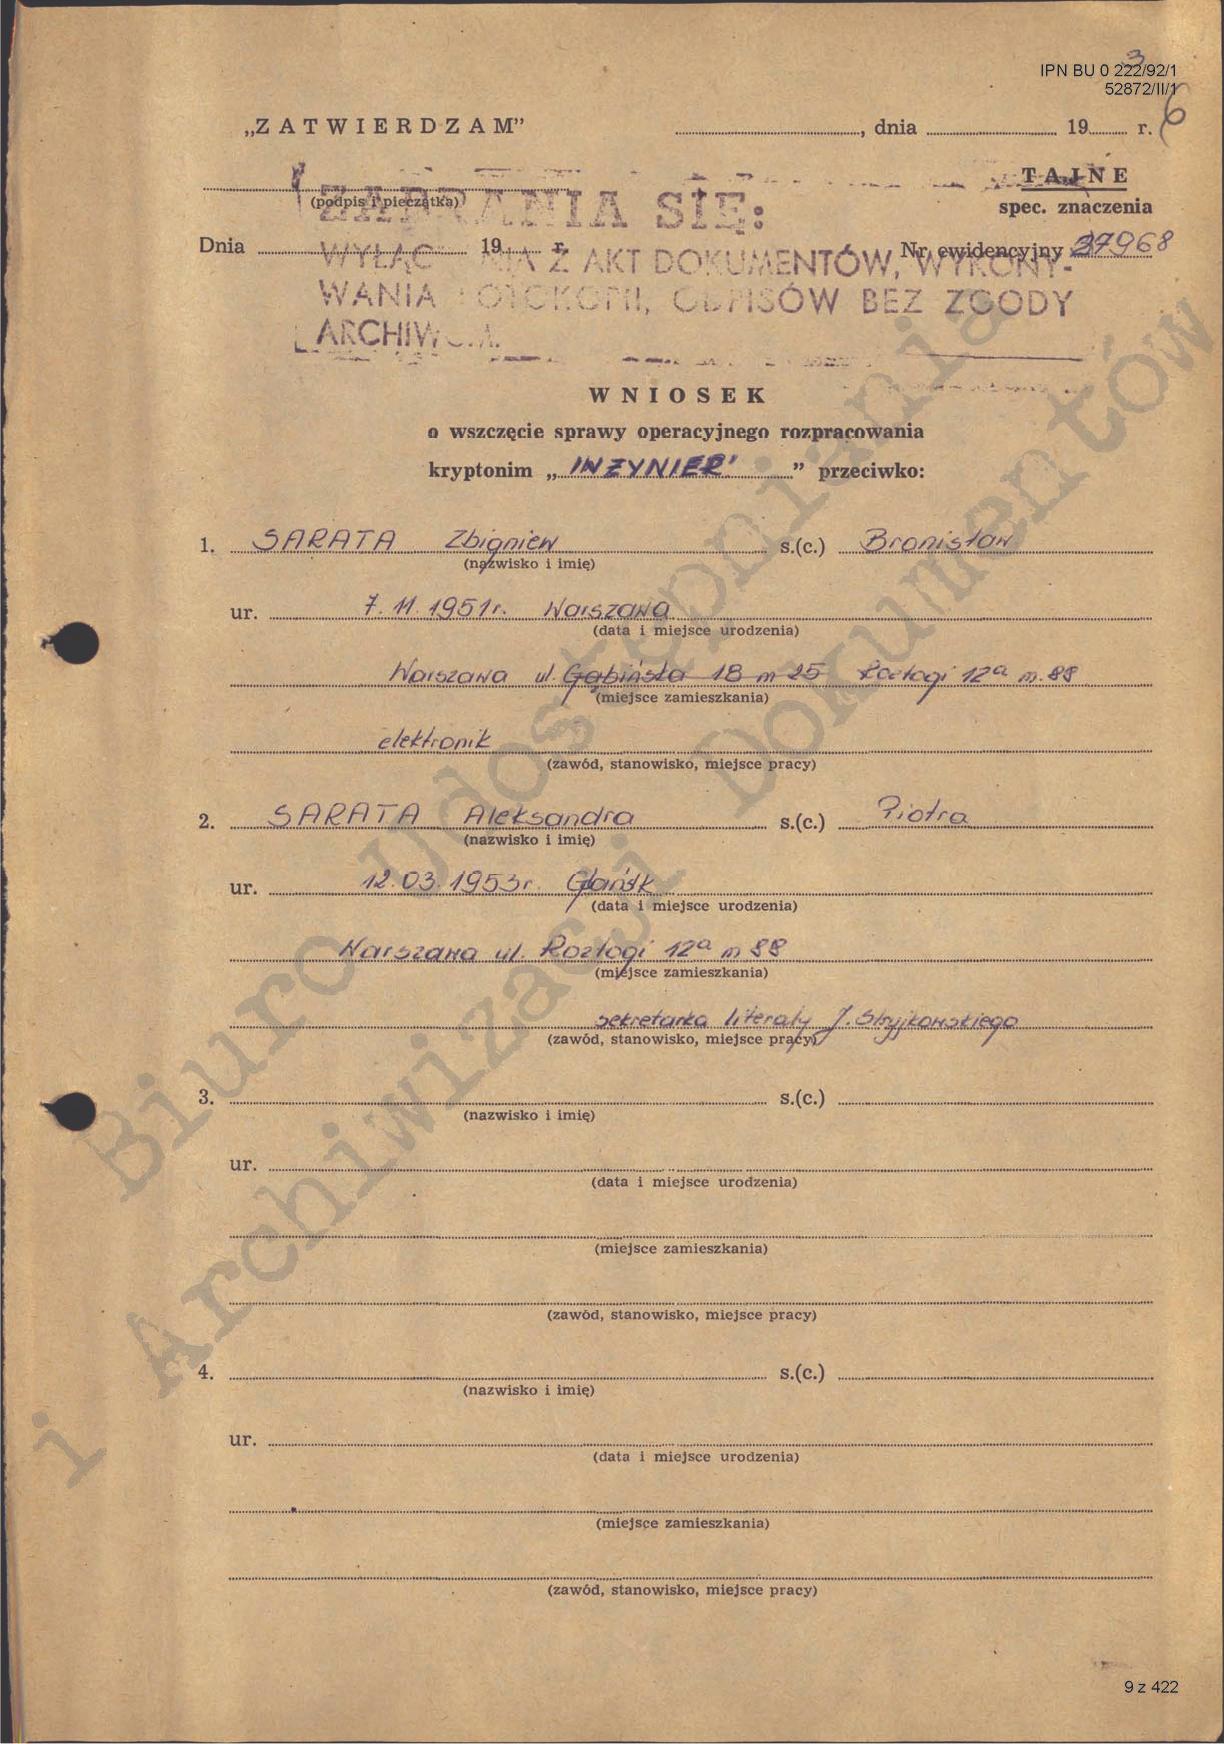 3
IPN BU 0 222/92/1
52872/II/1
6
„ZATWIERDZAM” ........, dnia ........ 19...... r.
TAJNE
(podpis i pieczątka)
spec. znaczenia
ZABRANIA SIĘ:
Dnia ........ 19...... r.
Nr ewidencyjny 37968
Z AKT DOKUMENTÓW, WYKONY-
WANIA FOTOKOPII, ODPISÓW BEZ ZGODY
ARCHIWUM.
WNIOSEK
o wszczęcie sprawy operacyjnego rozpracowania
kryptonim „INŻYNIER” przeciwko:
1. SARATA Zbigniew s.(c.) Bronisław
(nazwisko i imię)
ur. 7.11.1951r. Warszawa
(data i miejsce urodzenia)
Warszawa ul. Gąbińska 18 m 25 Rozłogi 12a m. 88
(miejsce zamieszkania)
elektronik
(zawód, stanowisko, miejsce pracy)
2. SARATA Aleksandra s.(c.) Piotra
(nazwisko i imię)
ur. 12.03.1953r. Gdańsk
(data i miejsce urodzenia)
Warszawa ul. Rozłogi 12a m 88
(miejsce zamieszkania)
sekretarka literaty J. Stryjkowskiego
(zawód, stanowisko, miejsce pracy)
3. ........ s.(c.) ........
(nazwisko i imię)
ur. ........
(data i miejsce urodzenia)
(miejsce zamieszkania)
(zawód, stanowisko, miejsce pracy)
4. ........ s.(c.) ........
(nazwisko i imię)
ur. ........
(data i miejsce urodzenia)
(miejsce zamieszkania)
(zawód, stanowisko, miejsce pracy)
Biuro Udostępniania
i Archiwizacji Dokumentów
9 z 422